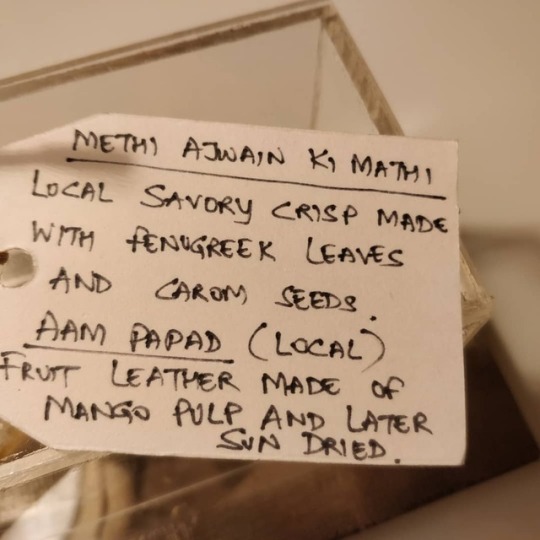 METHI AJWAIN KI MATHI
LOCAL SAVORY CRISP MADE
WITH FENUGREEK LEAVES
AND CAROM SEEDS.
AAM PAPAD (LOCAL)
FRUIT LEATHER MADE OF
MANGO PULP AND LATER
SUN DRIED.